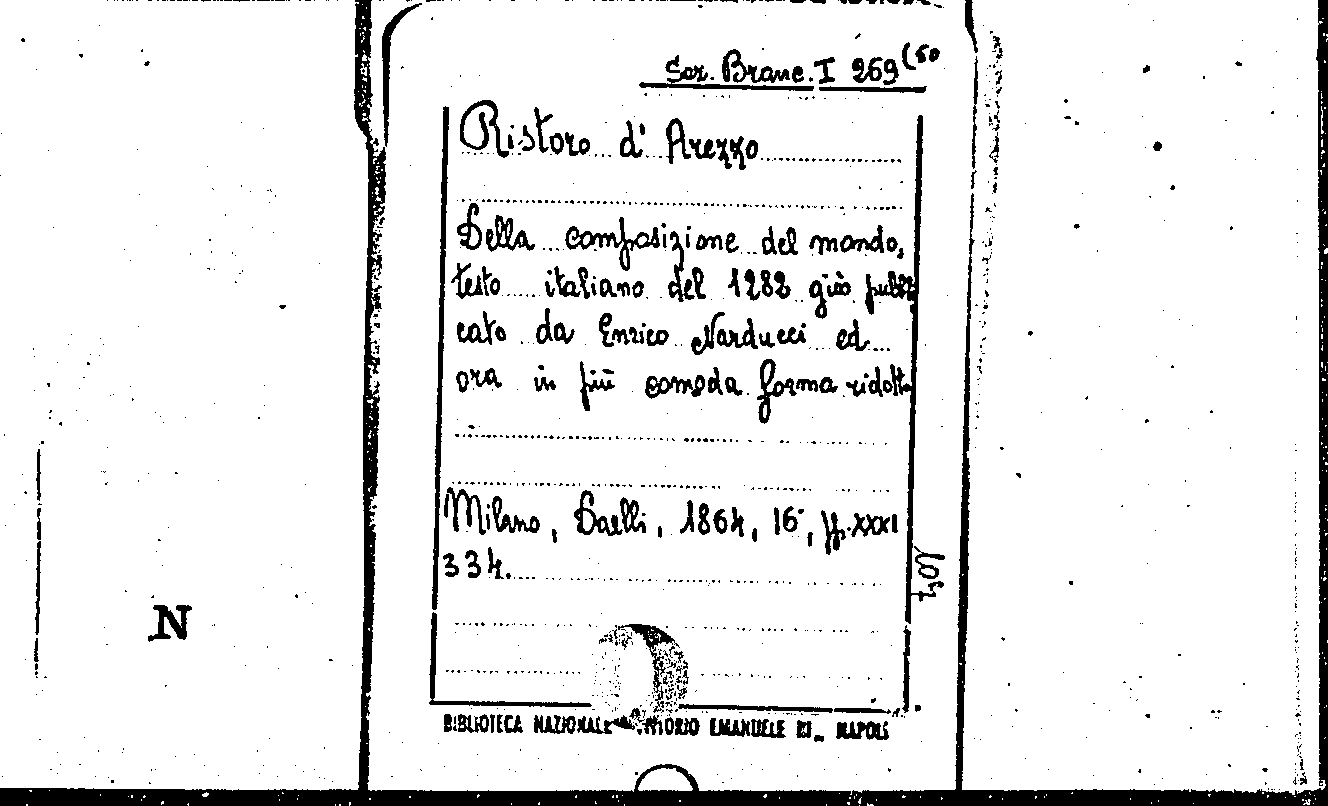 Sar. Branc. I 269 (60
Ristoro d' Arezzo
Della composizione del mondo,
testo italiano del 1282 già pubbli
cato da Enrico Narducci ed
ora in più comoda forma ridotta
Milano, Daelli, 1864, 16°, pp. XXXI
334.
N
BIBLIOTECA NAZIONALE VITTORIO EMANUELE III_ NAPOLI